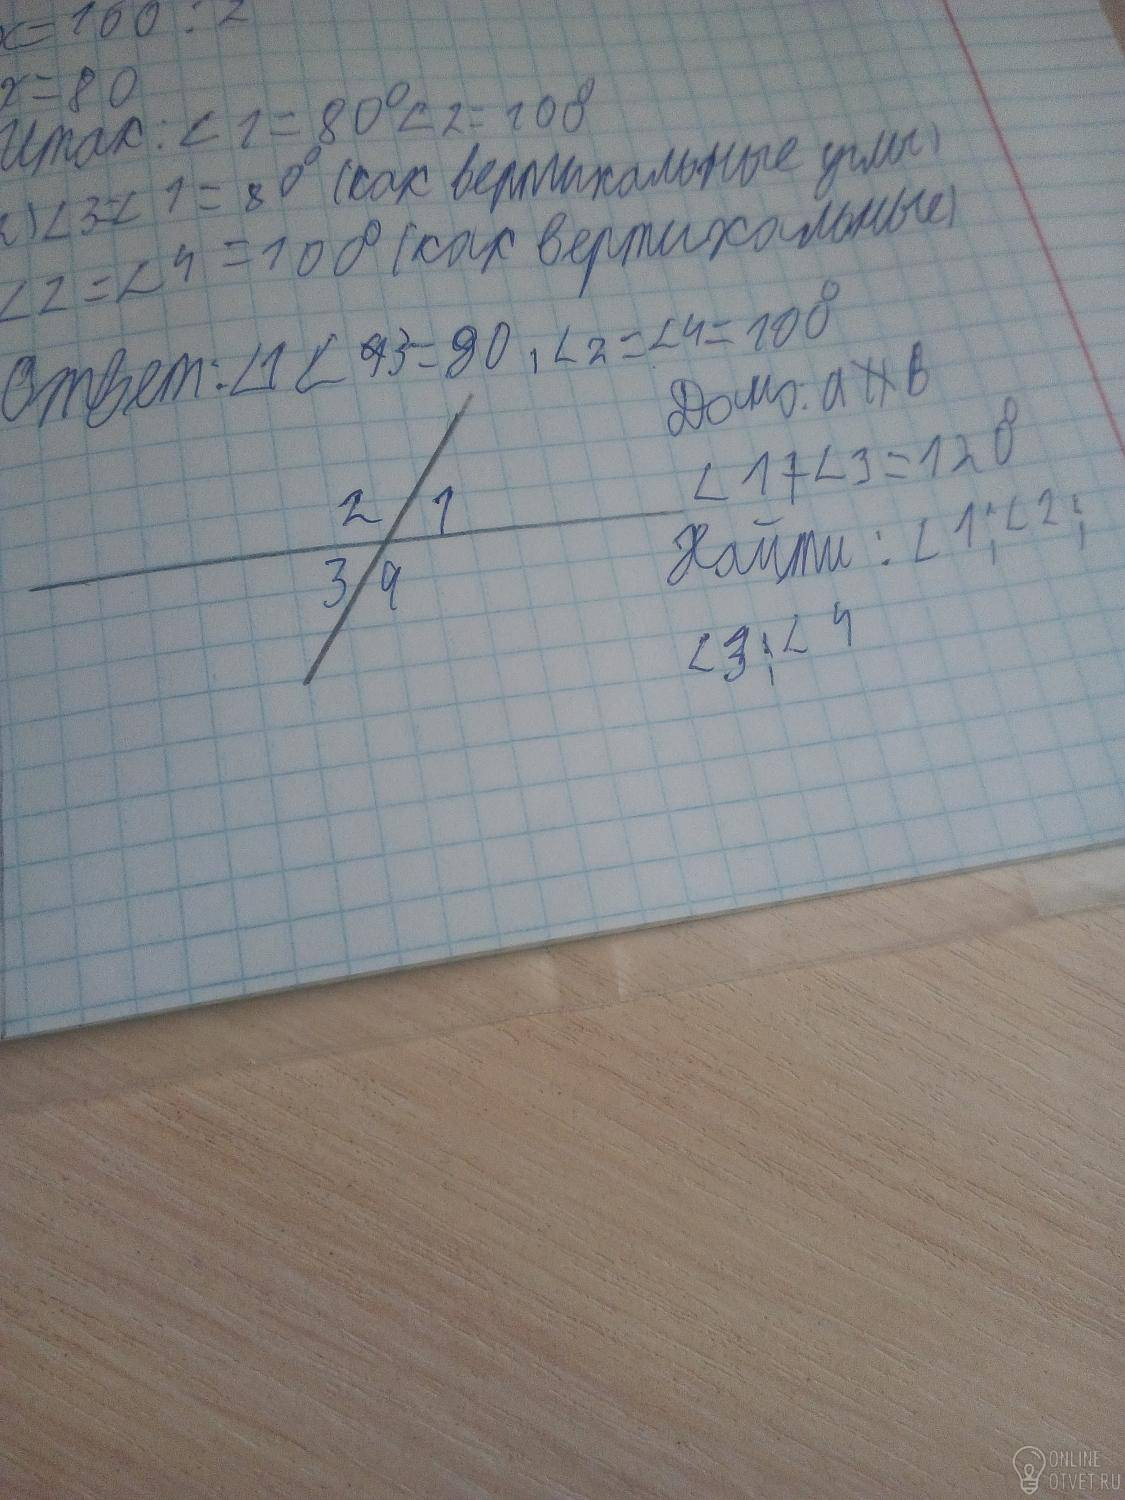 x=160:2
x=80
Итак: ∠1=80° ∠2=100
2) ∠3=∠1=80° (как вертикальные углы)
∠2=∠4=100 (как вертикальные)
Ответ: ∠1 ∠3=80, ∠2=∠4=100
Дано: a ∦ B
2 1
∠1+∠3=120
3 4
Найти: ∠1; ∠2;
∠3; ∠4
ONLINE
OTVET.RU